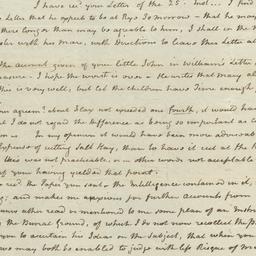 I have recd. your Letter of the 25. Inst. I find
Letter that he expects to be at Rye Tomorrow — that he may
there longer than may be agreable to him, I shall in the M
with this man, with Directions to leave this Letter at
The account given of your little John in William's Letter
asure. I hope the worst is over — He writes that many al
This is very well; but let the children have Time enough
you agreem.t about Clay not exceeded one Fourth, it would have
I do not regard the Difference as being so important as to
In my opinion it would have been more advisable
Expense of cutting Salt Hay, than to have it cut at the H
this was not practicable, or in other words not acceptable
of your having yielded that point.
recd. the Paper you sent & the Intelligence contained in it,
and makes me anxious for further accounts from
other read or mentioned to me some plan of an Instru
the Burial Ground, of which I do not now recollect the p
you to ascertain his Ideas on the Subject, that when you
we may both be enabled to judge with less Risque of M